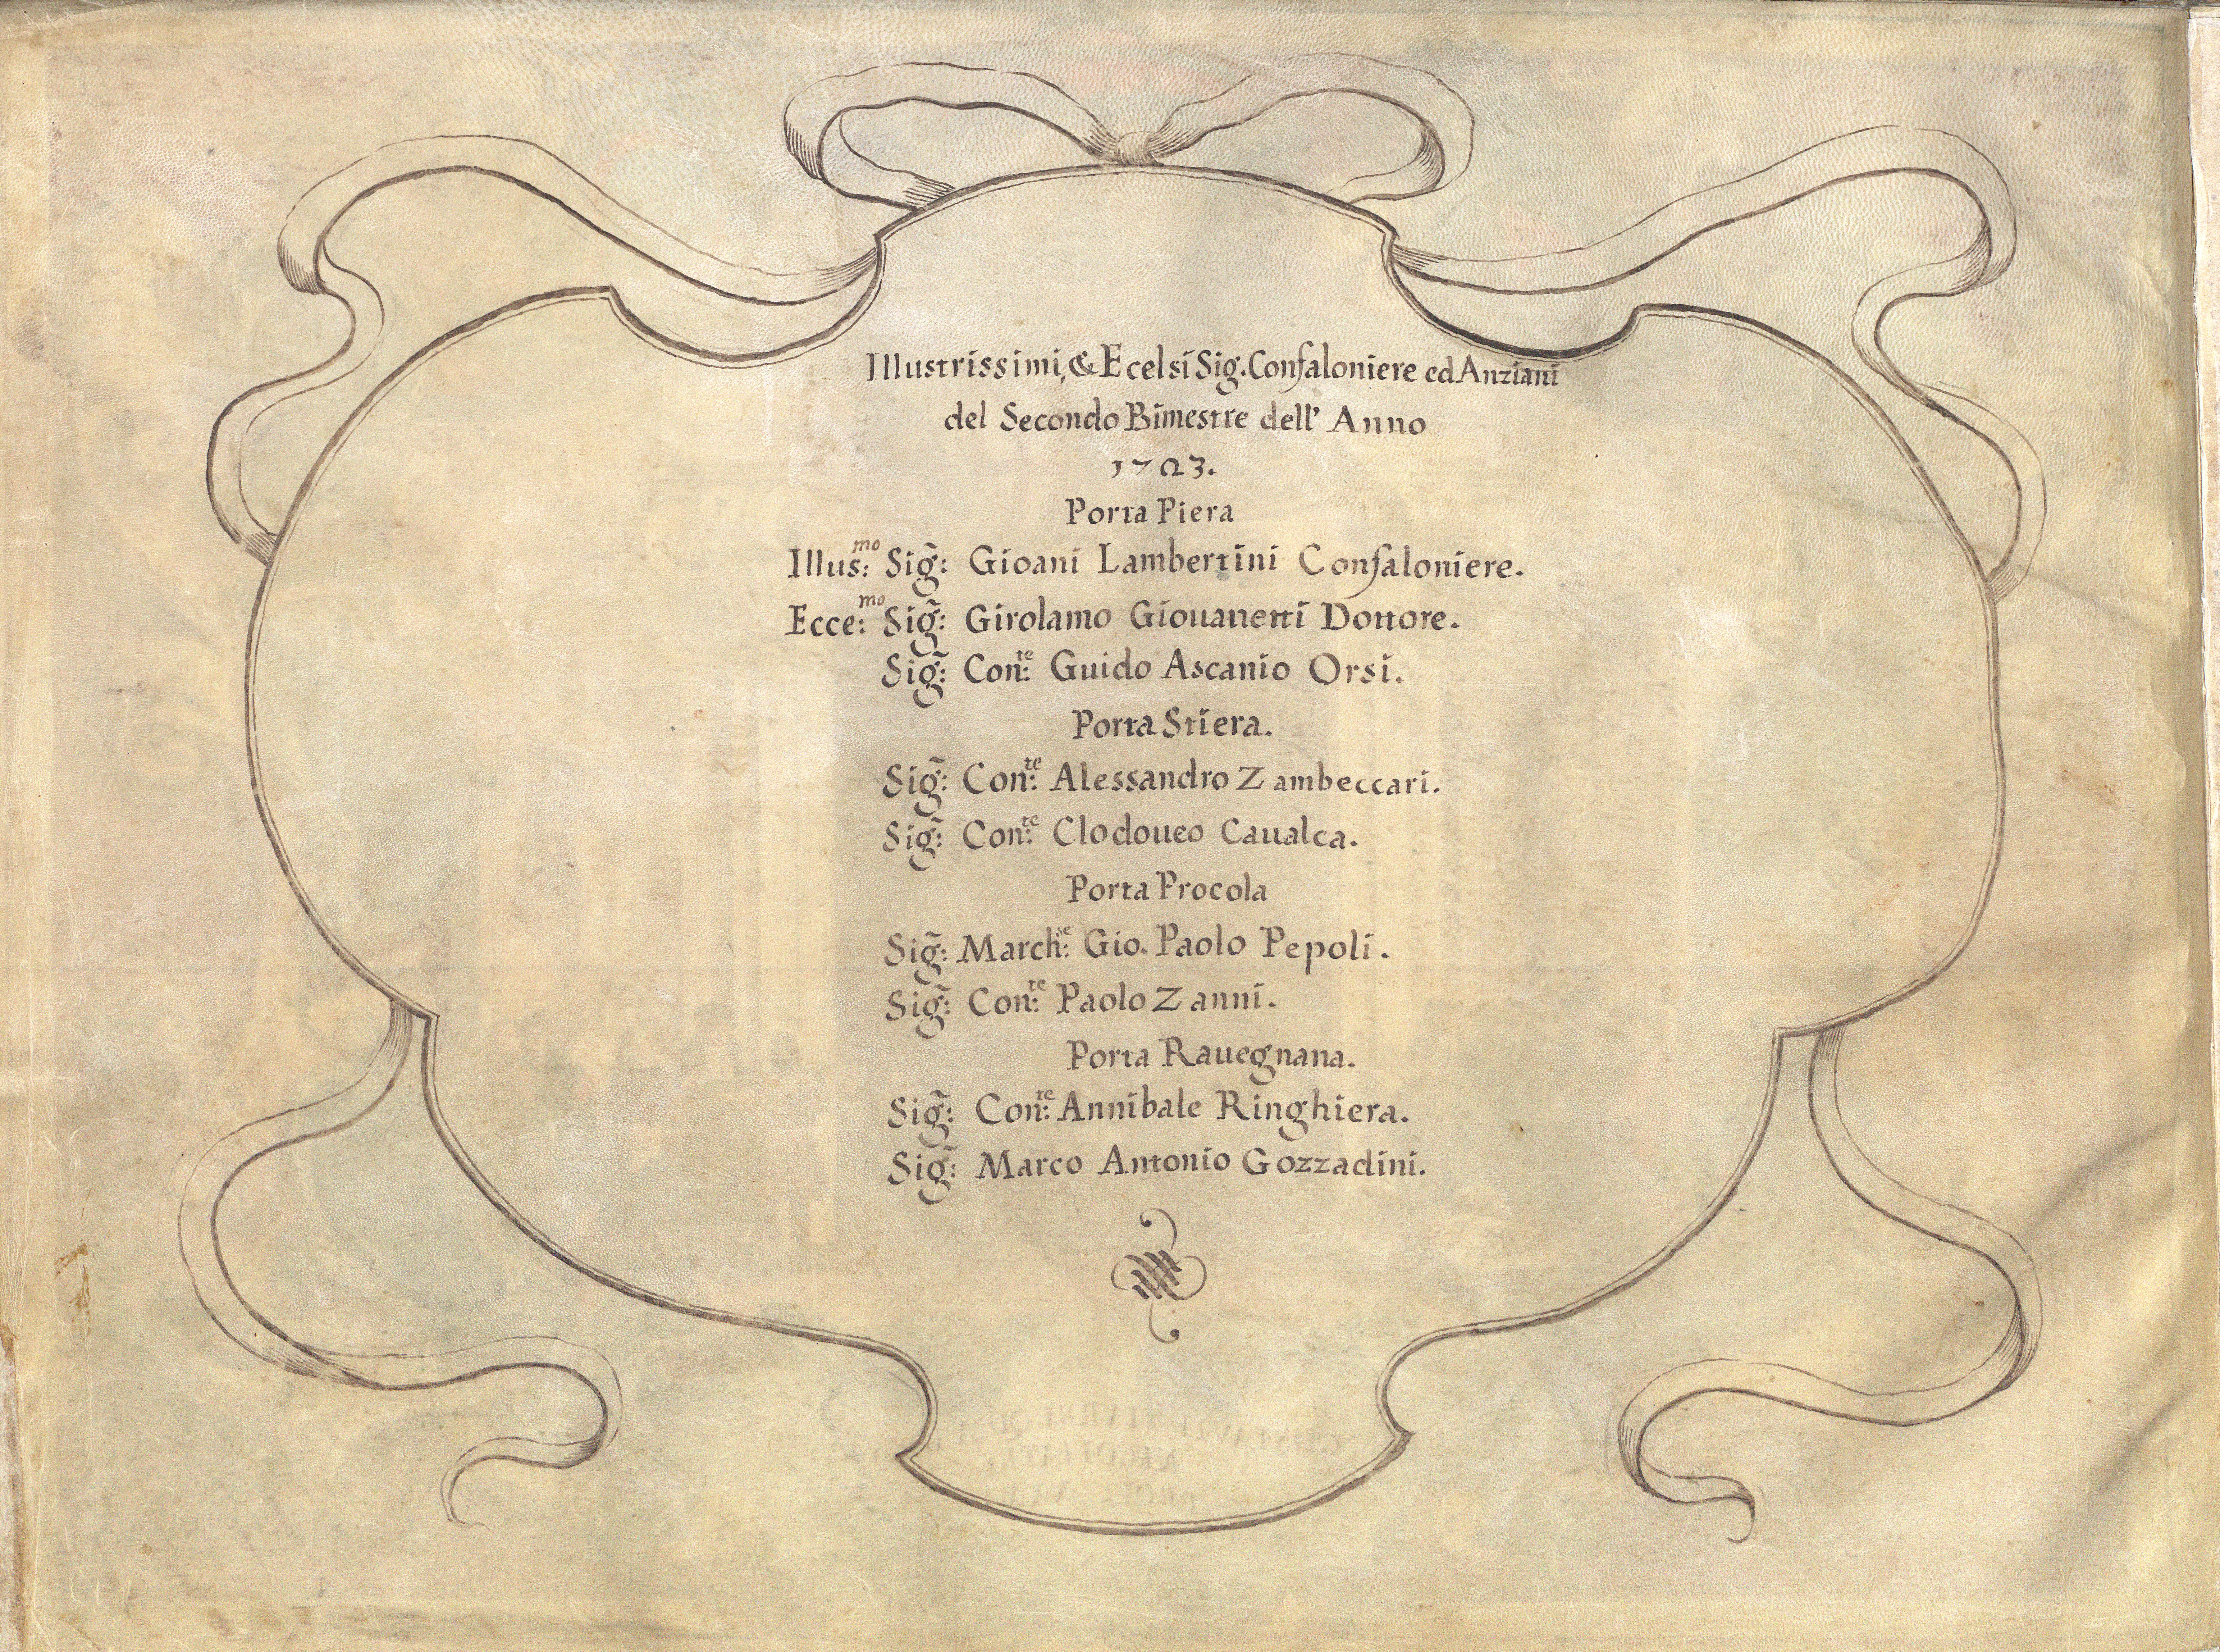 Illustrissimi, & Ecelsi Sig. Confaloniere ed Anziani
del Secondo Bimestre dell' Anno
1703.
Porta Piera
Illus:mo Sig̃: Gioani Lambertini Confaloniere.
Ecce:mo Sig̃: Girolamo Giouanetti Dottore.
Sig̃: Con:te Guido Ascanio Orsi.
Porta Stiera.
Sig̃: Con:te Alessandro Zambeccari.
Sig̃: Con:te Clodoueo Caualca.
Porta Procola
Sig̃: March:e Gio. Paolo Pepoli.
Sig̃: Con:te Paolo Zanni.
Porta Rauegnana.
Sig̃: Con:te Annibale Ringhiera.
Sig̃: Marco Antonio Gozzadini.